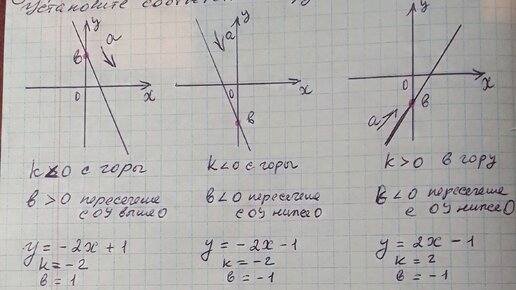 Установите
y
a
в
0
x
k<0 с горы
в>0 пересечение
с ОУ выше 0
y = -2x + 1
k = -2
в = 1
y
a
0
x
в
k<0 с горы
в<0 пересечение
с ОУ ниже 0
y = -2x - 1
k = -2
в = -1
y
0
x
в
a
k>0 в гору
в<0 пересечение
с ОУ ниже 0
y = 2x - 1
k = 2
в = -1